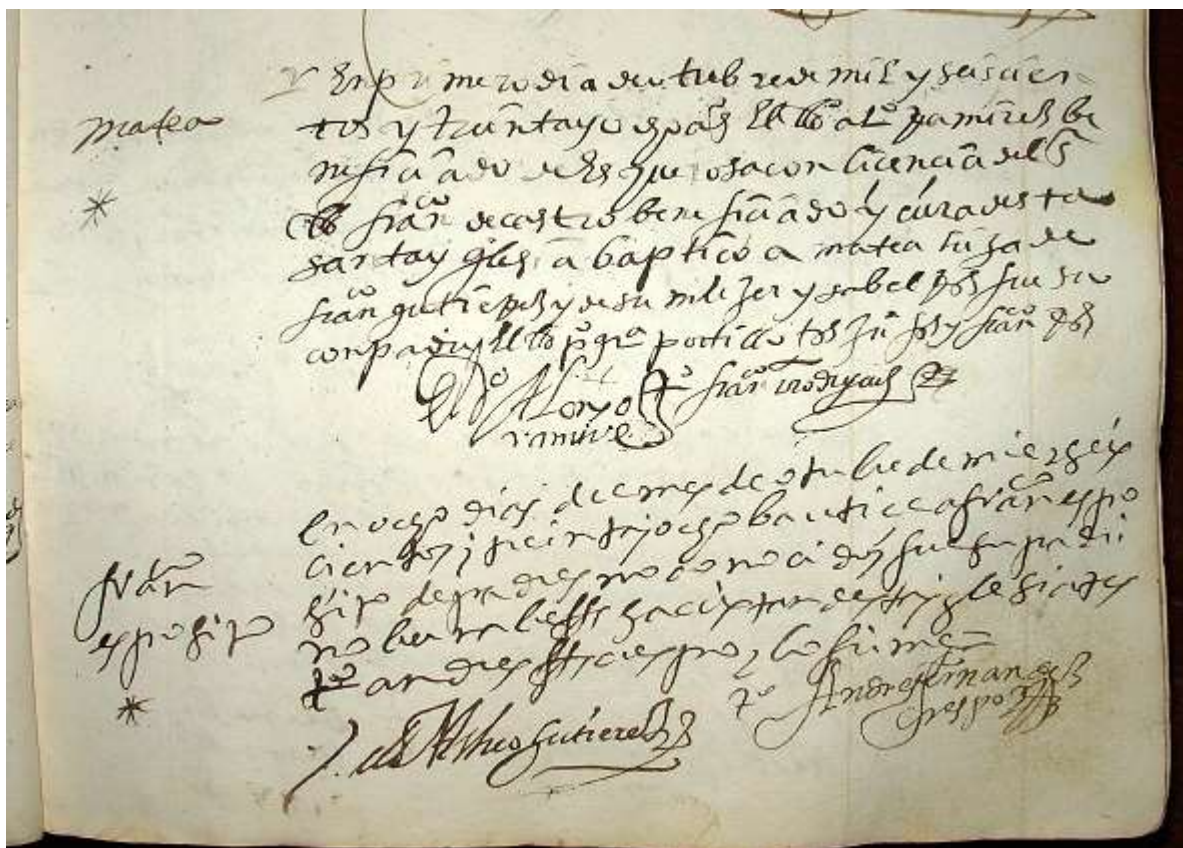 matea
En primero dia de otubre de mil y seiscien
tos y treinta y ocho años El lldo alo Ramires be
neficiado de Hesguerosa con licencia del Sr
lldo franco de castro beneficiado y cura desta
santa yglesia baptiço a matea hija de
franco gutierres y de su mujer ysabel fue su
conpadre El lldo portillo tos y franco
Alonso
ramires
to franco rodrigues
fran
esposito
en ocho dias del mes de otubre de mil y seis
cientos y treinta y ocho bautice a franco espo
sito de padres no conocidos fue su padri
no sacristan desta yglesia tes
to andres crespo y lo firme
Matheo Gutierez
to Andres fernandes
crespo